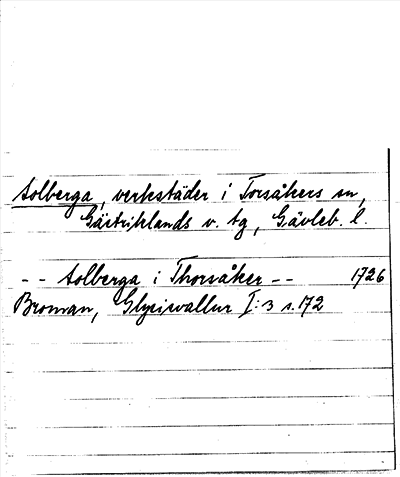 Solberga, verkstäder i Torsåkers sn,
Gästriklands v. tg, Gävleb. l.
-- Solberga i Thorsåker -- 1726
Broman, Glysisvallur I:3 s. 172